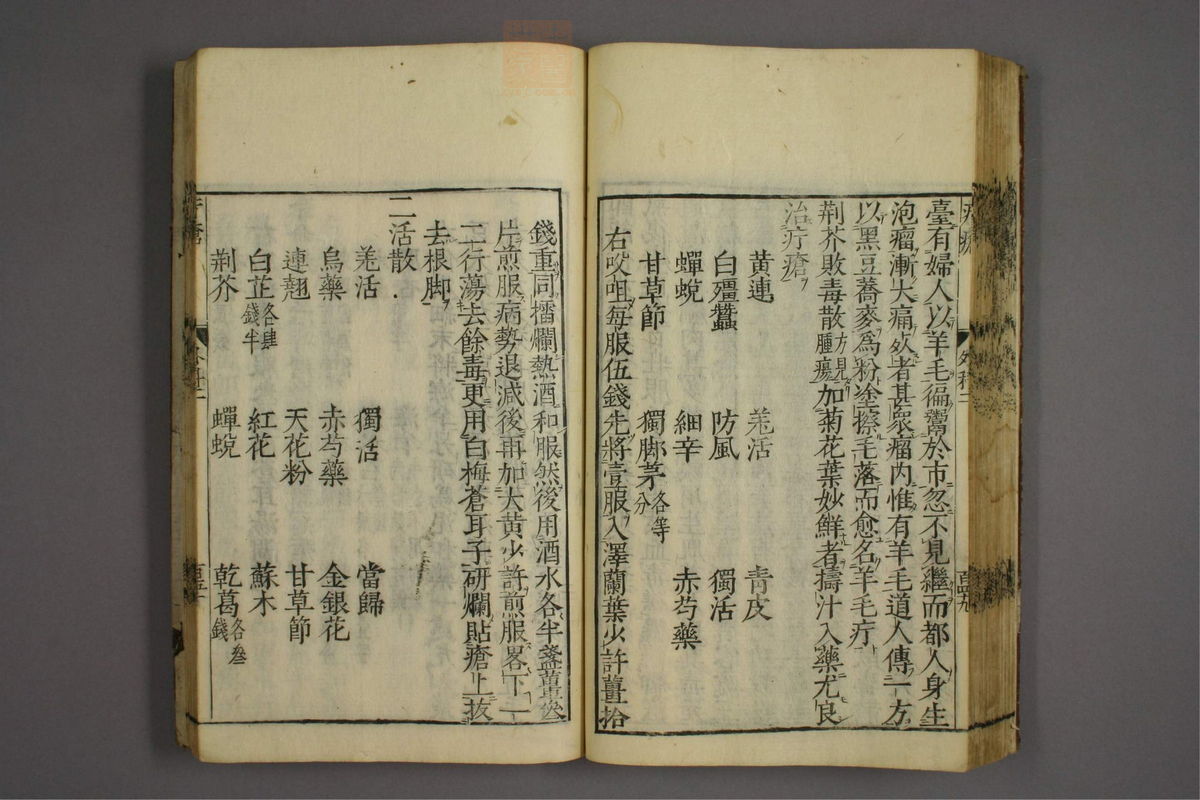 臺有婦人以羊毛徧鬻於市忽不見繼而都人身生
泡瘤漸大痛欬者甚衆瘤内惟有羊毛道人傳一方
以黑豆蕎麥爲粉塗擦毛落而愈名羊毛疔
荆芥敗毒散方見腫瘍加菊花葉妙鮮者擣汁入藥尤良
治疔瘡
黄連 羌活 青皮
白殭蠶 防風 獨活
蟬蛻 細辛 赤芍藥
甘草節 獨脚茅各等分
右㕮咀每服伍錢先將壹服入澤蘭葉少許薑拾
錢重同擂爛熱酒和服然後用酒水各半盞薑叁
片煎服病勢退減後再加大黄少許煎服畧下一
二行蕩去餘毒更用白梅蒼耳子研爛貼瘡上抜
去根脚
二活散
羌活 獨活 當歸
烏藥 赤芍藥 金銀花
連翹 天花粉 甘草節
白芷各肆錢半 紅花 蘇木
荆芥 蟬蛻 乾葛各叁錢